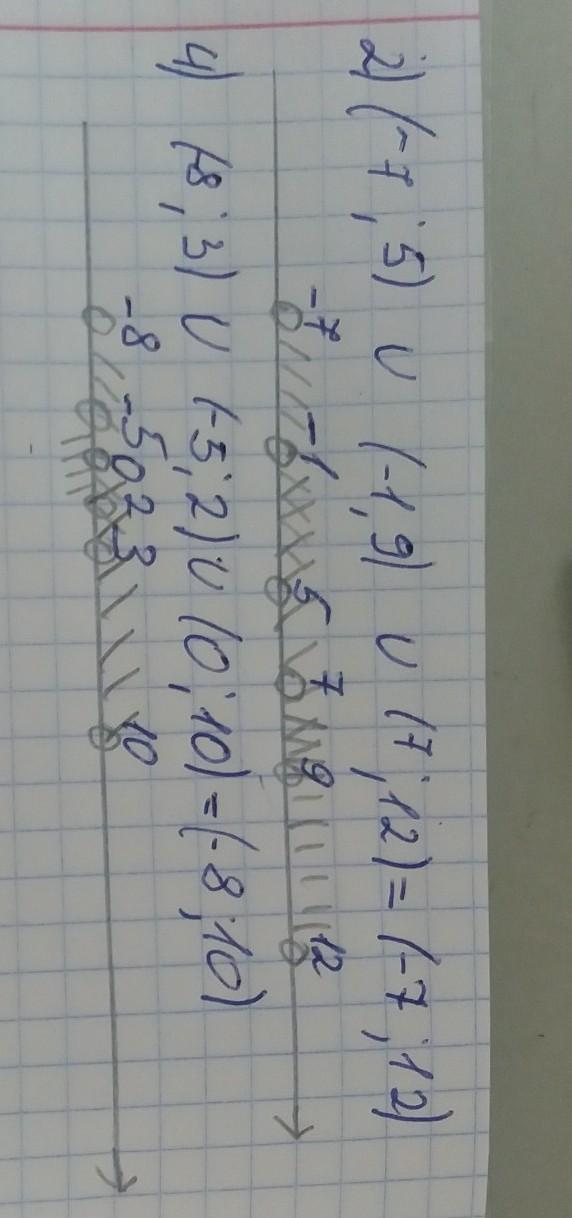 2) (-7; 5) ∪ (-1; 9) ∪ (7; 12) = (-7; 12)
-7 -1 5 7 9 12
4) (-8; 3) ∪ (-5; 2) ∪ (0; 10) = (-8; 10)
-8 -5 0 2 3 10